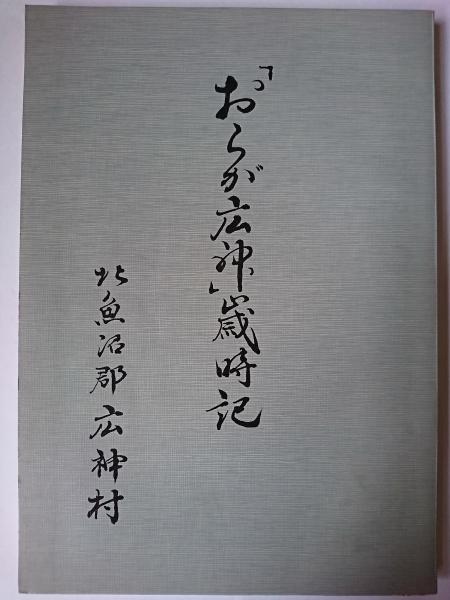 「おらが広神」歳時記
北魚沼郡広神村